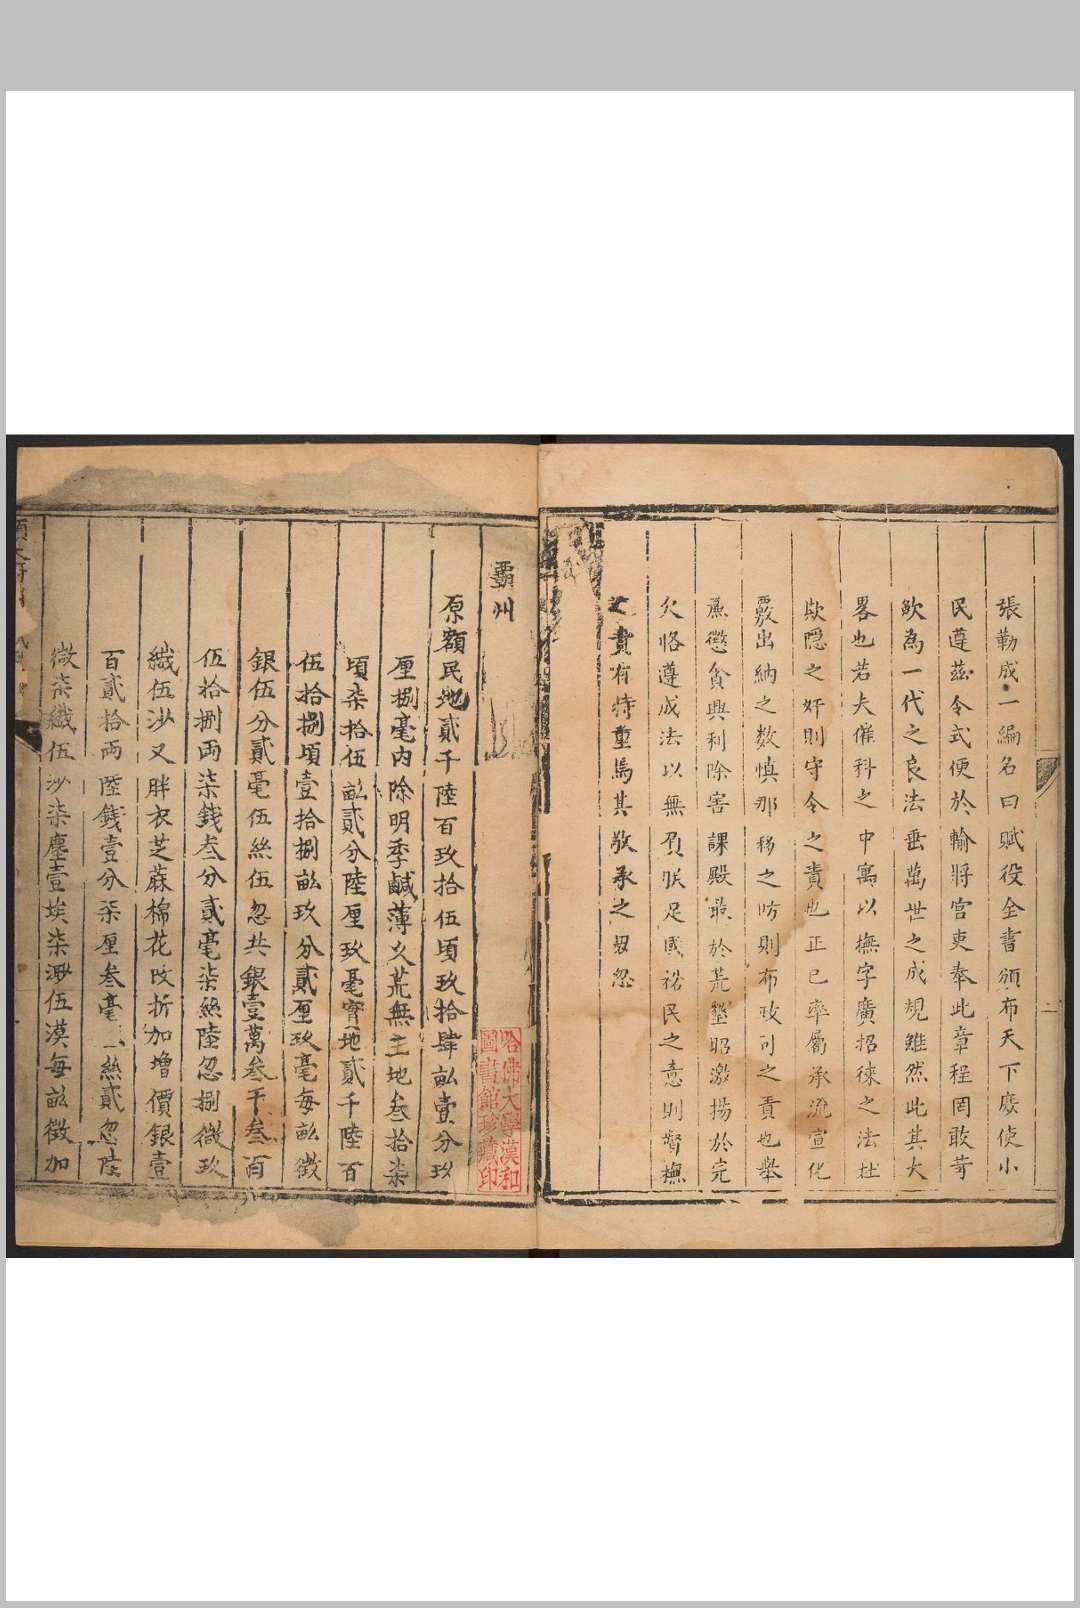 張勒成一編名曰賦役全書頒布天下庶使小
民遵茲令式便於輸將官吏奉此章程罔敢苛
歛為一代之良法垂萬世之成規雖然此其大
畧也若夫催科之中寓以撫字廣招徠之法杜
欺隱之奸則守令之責也正己率屬承流宣化
覈出納之数慎那移之防則布政司之責也舉
廉懲貪興利除害課殿最於荒墾昭激揚於完
欠恪遵成法以無負朕足國裕民之意則督撫
之責有特重焉其敬承之毋忽
二
霸州
原額民地貳千陸百玖拾伍頃玖拾肆畝壹分玖
厘捌毫内除明季鹹薄久荒無主地叁拾柒
頃柒拾伍畝貳分陸厘玖毫實地貳千陸百
伍拾捌頃壹拾捌畝玖分貳厘玖毫每畝徵
銀伍分貳毫伍絲伍忽共銀壹萬叁千叁百
伍拾捌両柒錢叁分貳毫柒絲陸忽捌微玖
纖伍沙又胖衣芝蔴棉花改折加增價銀壹
百貳拾両陸錢壹分柒厘叁毫一絲貳忽陸
微柒纖伍沙柒塵壹埃柒渺伍漠每畝徵加
哈佛大學漢和
圖書館珍藏印